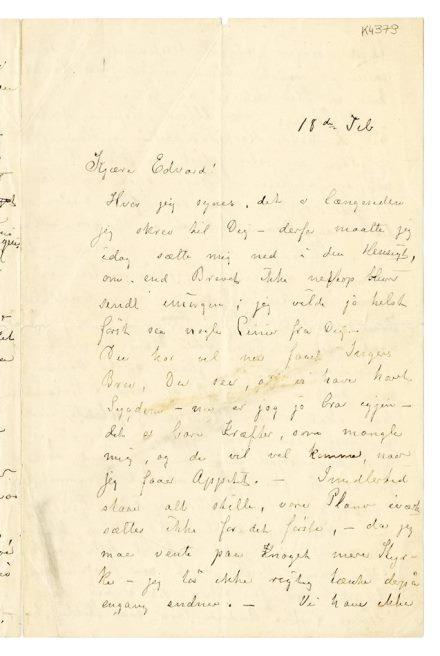 K4379
18de Feb
Kjære Edvard!
Hvor jeg synes, det er længesiden
jeg skrev til Dig – derfor maatte jeg
idag sætte mig ned i den Hensigt,
om end Brevet ikke blev
sendt imorgen; jeg vilde jo helst
først see nogle Linier fra Dig.
Du har vel nu faaet Ingers
Brev, Du seer, at vi have havt
Sygdom – nu er jeg jo bra igjen –
det er bare Kræfter, som mangle
mig, og de vil vel komme, naar
jeg faaer Appetit. – Imidlertid
staar alt stille, vore Planer
sættes ikke for det første, – da jeg
maa vente paa noget mere Styr-
ke – jeg tør ikke rigtig tænke derpå
engang endnu. – Vi have ikke